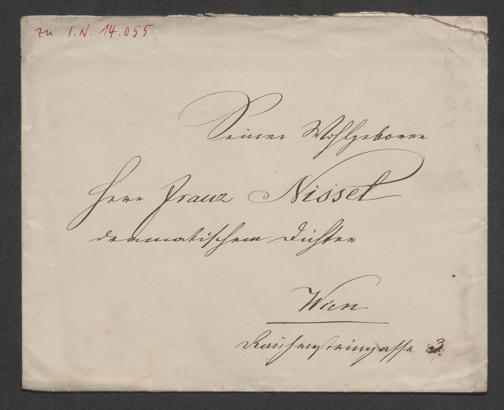 zu I.N. 14.055
Seiner Wohlgeboren
Herr Franz Nissel
dramatischem Dichter
Wien
Rauhensteingasse 3